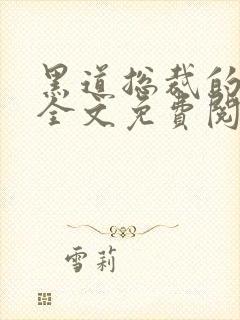 黑道总裁的
全文免費閱
雪莉